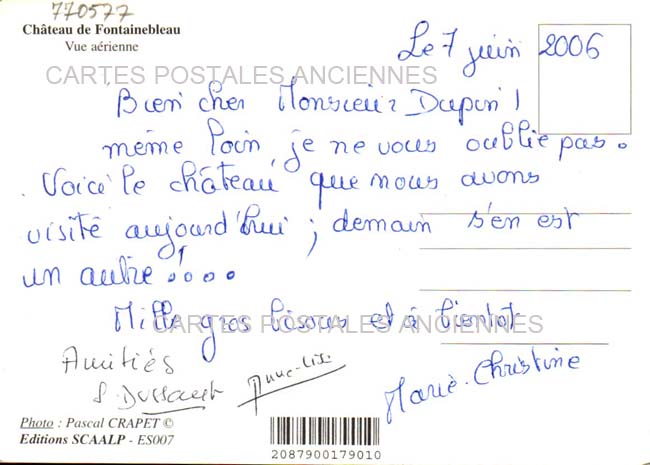 770577
Château de Fontainebleau
Vue aérienne
Le 7 juin 2006
CARTES POSTALES ANCIENNES
Bien cher Monsieur Dupin !
même loin, je ne vous oublie pas.
Voici le château que nous avons
visité aujourd'hui ; demain s'en est
un autre !...
Mille gros bisous et à bientôt
CARTES POSTALES ANCIENNES
Amitiés
Marie-Christine
Photo : Pascal CRAPET ©
Editions SCAALP - ES007
2087900179010